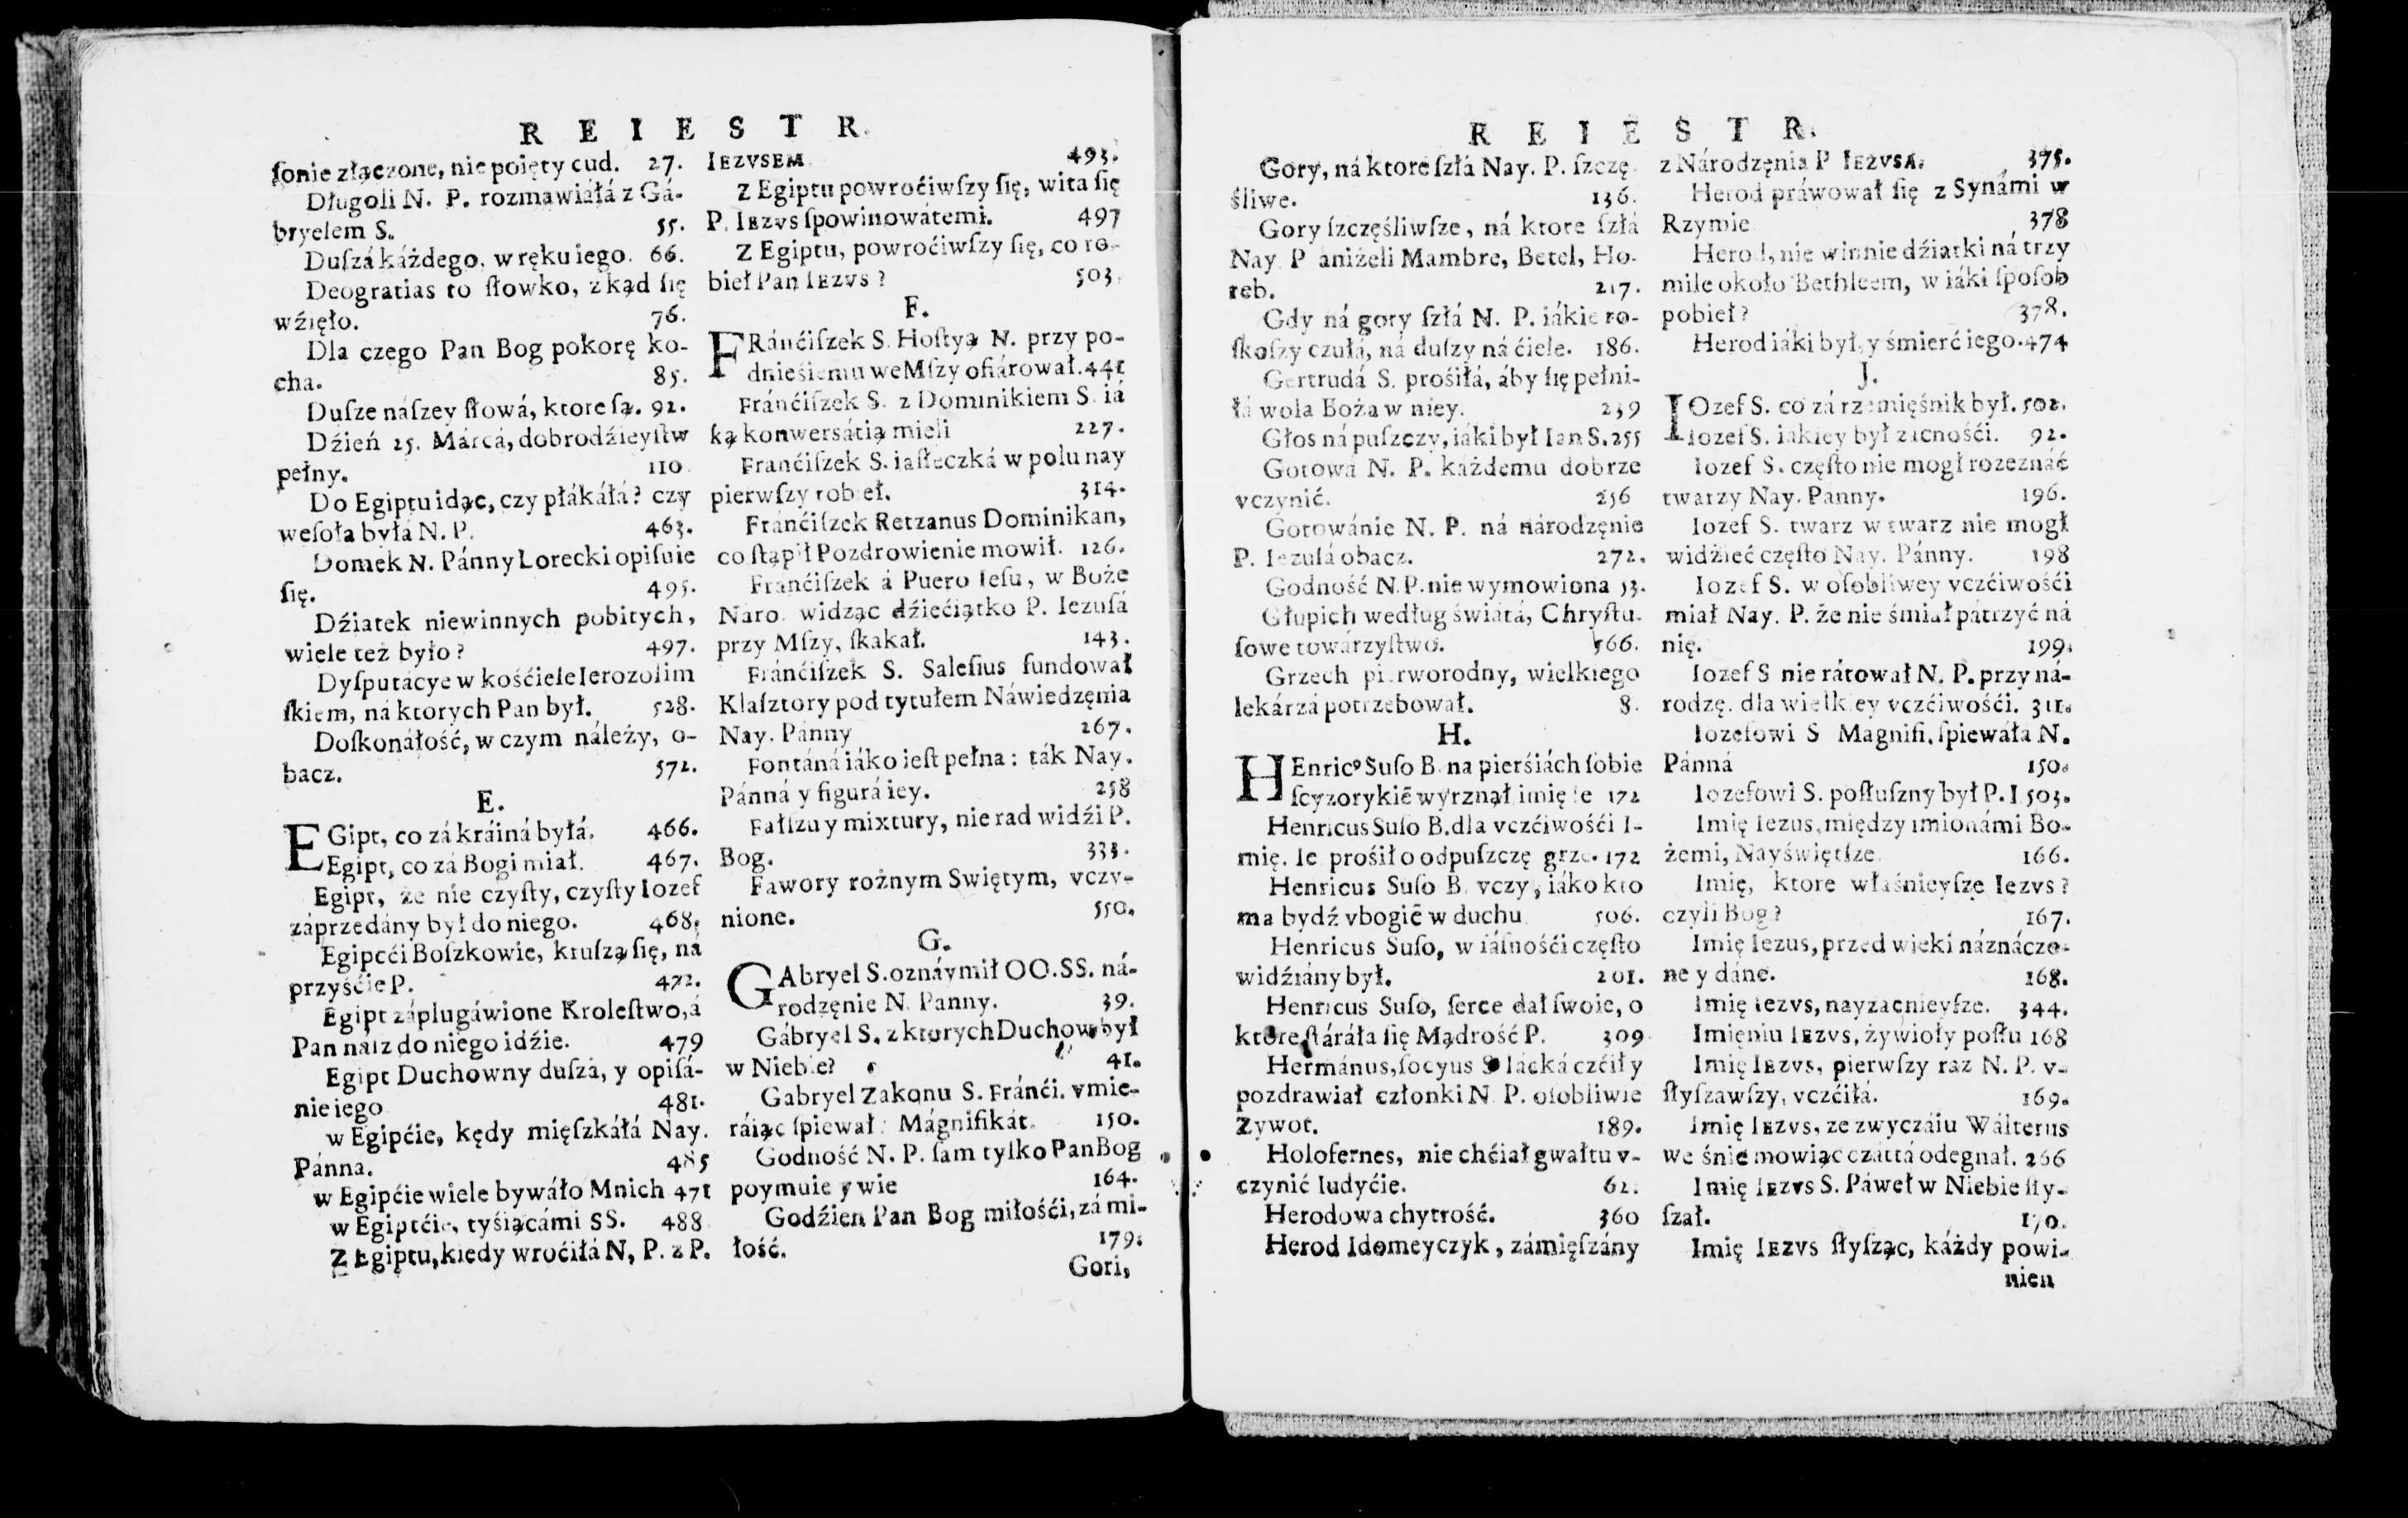 REIESTR.
ſonie złączone, nie poięty cud. 27.
Długoli N. P. rozmawiáłá z Gá-
bryelem S. 55.
Duſzá káżdego, w ręku iego. 66.
Deogratias to ſłowko, zkąd się
wźięło. 76.
Dla czego Pan Bog pokorę ko-
cha. 85.
Duſze náſzey ſłowá, ktore ſą. 92.
Dźień 25. Márcá, dobrodźieyſtw
pełny. 110
Do Egiptu idąc, czy płákáłá? czy
weſoła byłá N. P. 463.
Domek N. Pánny Lorecki opiſuie
ſię. 495.
Dźiatek niewinnych pobitych,
wiele też było? 497.
Dyſputácye w kośćiele Ierozolim
ſkiem, ná ktorych Pan był. 528.
Doſkonáłość, w czym náleży, o-
bacz. 572.
E.
EGipt, co zá kráiná byłá. 466.
Egipt, co zá Bogi miał. 467.
Egipt, że nie czyſty, czyſty Iozef
záprzedány był do niego. 468.
Egiptći Boſzkowie, kruſzą się, ná
przyśćie P. 472.
Egipt záplugáwione Kroleſtwo, á
Pan náſz do niego idźie. 479
Egipt Duchowny duſzá, y opiſá-
nie iego 481.
w Egipćie, kędy mięſzkáłá Nay.
Pánna. 485
w Egipćie wiele bywáło Mnich 471
w Egiptćie, tyśiącámi SS. 488
Z Egiptu, kiedy wroćiłá N, P. z P.
IEZVSEM 493.
Z Egiptu powroćiwſzy ſię, wita ſię
P. IEZVS ſpowinowátemi. 497
Z Egiptu, powroćiwſzy ſię, co ro-
bieł Pan IEZVS? 503.
F.
FRánćiſzek S. Hoſtyą N. przy po-
dnieśieniu we Mſzy ofiárował. 441
Fránćiſzek S. z Dominikiem S. iá
ką konwersátią mieli 227.
Franćiſzek S. iasłeczká w polu nay
pierwſzy robieł. 314.
Fránćiſzek Retzanus Dominikan,
co ſtąpił Pozdrowienie mowił. 126.
Fránćiſzek á Puero Ieſu, w Boże
Náro. widząc dźiećiątko P. Iezuſá
przy Mſzy, ſkakał. 143.
Fránćiſzek S. Saleſius fundował
Klaſztory pod tytułem Náwiedzęnia
Nay. Pánny 267.
Fontáná iáko ieſt pełna: ták Nay.
Pánná y figurá iey. 258
Fałſzu y mixtury, nie rad widźi P.
Bog. 333.
Fawory rożnym Swiętym, vczy-
nione. 550.
G.
GAbryel S. oznáymił OO. SS. ná-
rodzęnie N. Panny. 39.
Gábryel S. z ktorych Duchow był
w Niebie? 41.
Gabryel Zakonu S. Fránći. vmie-
ráiąc ſpiewał Mágnifikát. 150.
Godność N. P. ſam tylko Pan Bog
poymuie y wie 164.
Godźien Pan Bog miłośći, zá mi-
łość. 179.
Gori,
REIESTR.
Gory, ná ktore ſzłá Nay. P. ſzczę
śliwe. 136.
Gory ſzczęśliwſze, ná ktore ſzłá
Nay P aniżeli Mambre, Betel, Ho-
reb. 217.
Gdy ná gory ſzłá N. P. iákie ro-
ſkoſzy czułá, ná duſzy ná ćiele. 186.
Gertrudá S. prośiłá, áby się pełni-
łá wola Boża w niey. 239
Głos ná puſzczy, iáki był Ian S. 255
Gotowá N. P. każdemu dobrze
vczynić. 256
Gotowánie N. P. ná národzęnie
P. Iezuſá obacz. 272.
Godność N. P. nie wymowiona 53.
Głupich według świátá, Chryſtu-
ſowe towárzyſtwo. 566.
Grzech pierworodny, wielkiego
lekárzá potrzebował. 8.
H.
HEnricꝰ Suſo B. na pierśiách ſobie
ſcyzorykiē wyrznął imię Ie 172
Henricus Suſo B. dla vczćiwośći I-
mię. Ie prośił o odpuſzczę grze. 172
Henricus Suſo B. vczy, iáko kto
ma bydź vbogiē w duchu 506.
Henricus Suſo, w iáſnośći częſto
widźiány był. 201.
Henricus Suſo, ſerce dał ſwoie, o
ktore ſtáráła się Mądrość P. 309
Hermánus, ſocyus S Iácká czćił y
pozdrawiał członki N P. oſobliwie
Żywot. 189.
Holofernes, nie chćiał gwałtu v-
czynić Iudyćie. 62.
Herodowa chytrość. 360
Herod Idomeyczyk, zámięſzány
z Národzęnia P IEZVSA. 375.
Herod práwował się z Synámi w
Rzymie 378
Herod, nie winnie dźiatki ná trzy
mile około Bethleem, w iáki ſpoſob
pobieł? 378.
Herod iáki był, y śmierć iego. 474
J.
IOzef S. co zá rzemięśnik był. 502.
Iozef S. iakiey był zacnośći. 92.
Iozef S. częſto nie mogł rozeznáć
twarzy Nay. Panny. 196.
Iozef S. twarz w twarz nie mogł
widźieć częſto Nay. Pánny. 198
Iozef S. w oſobliwey vczćiwośći
miał Nay. P. że nie śmiał pátrzyć ná
nię. 199.
Iozef S nie rátował N. P. przy ná-
rodzę. dla wielkiey vczćiwośći. 311.
Iozefowi S Magnifi. ſpiewáła N.
Pánná 150.
Iozefowi S. poſłuſzny był P. I 503.
Imię Iezus, między imionámi Bo-
żemi, Nayświętſze. 166.
Imię, ktore właśnieyſze Iezvs?
czyli Bog? 167.
Imię Iezus, przed wieki náznáczo-
ne y dáne. 168.
Imię Iezvs, nayzacnieyſze. 344.
Imięniu IEZVS, żywioły poſłu 168
Imię IEZVS, pierwſzy raz N. P. v-
ſłyſzawſzy, vczćiłá. 169.
Imię IEZVS, ze zwyczáiu Wálterus
we śnie mowiąc czártá odegnał. 266
Imię IEZVS S. Páweł w Niebie ſły-
ſzał. 170.
Imię IEZVS ſłyſząc, káżdy powi-
nien